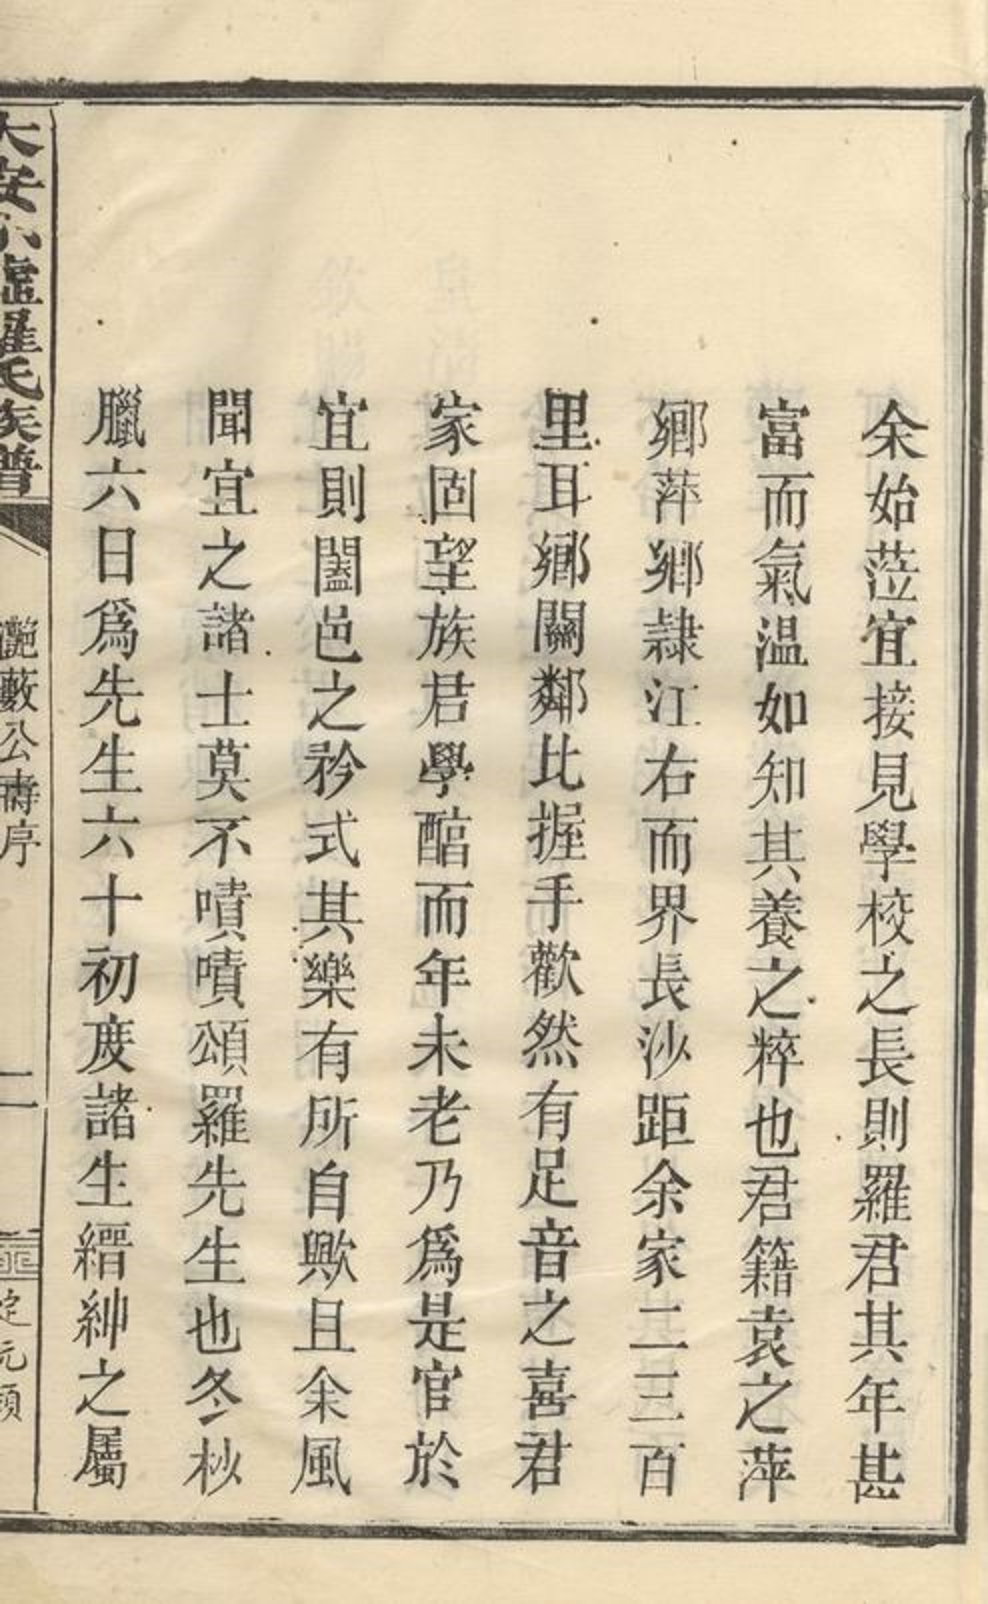 余始蒞宜接見學校之長則羅君其年甚
富而氣温如知其養之粹也君籍袁之萍
鄉萍鄉隷江右而界長沙距余家二三百
里耳鄉關鄰比握手歡然有足音之喜君
家固望族君學醕而年未老乃爲是官於
宜則闔邑之矜式其樂有所自歟且余風
聞宜之諸士莫不嘖嘖頌羅先生也冬杪
臘六日爲先生六十初度諸生縉紳之屬
大安小虛羅氏族譜
艷藪公壽序
二
定元頴